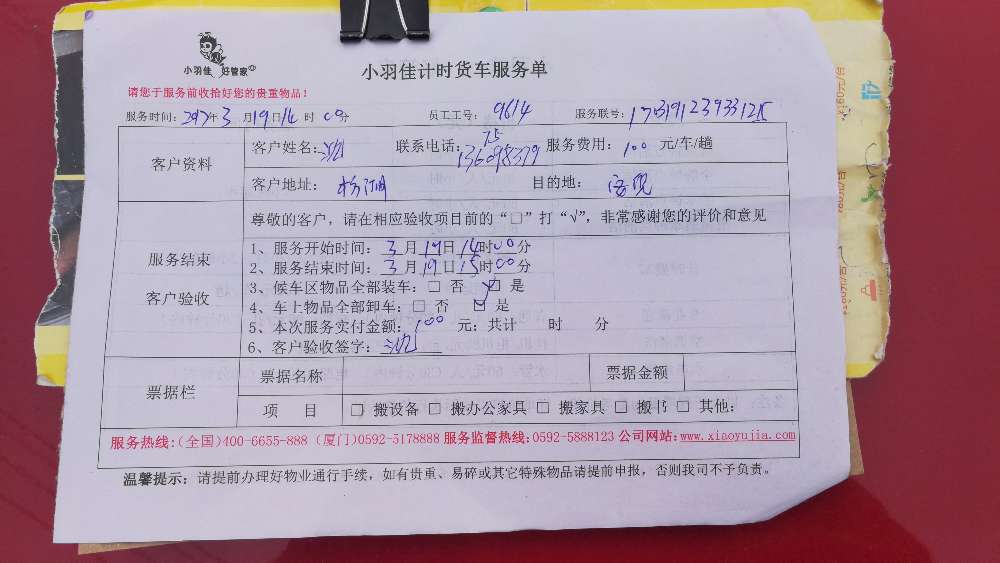 小羽佳 好管家
小羽佳计时货车服务单
请您于服务前收拾好您的贵重物品！
服务时间：2017年3月19日14时00分 员工工号：9614 服务联号：
客户资料
客户姓名： 联系电话： 服务费用：100 元/车/趟
客户地址： 目的地：
尊敬的客户，请在相应验收项目前的“□”打“√”，非常感谢您的评价和意见
服务结束
客户验收
1、服务开始时间：3月19日14时00分
2、服务结束时间：3月19日15时00分
3、候车区物品全部装车：□ 否 ☑ 是
4、车上物品全部卸车：□ 否 ☑ 是
5、本次服务实付金额：100 元；共计 时 分
6、客户验收签字：
票据栏
票据名称 票据金额
项 目 □ 搬设备 □ 搬办公家具 □ 搬家具 □ 搬书 □ 其他：
服务热线：（全国）400-6655-888（厦门）0592-5178888 服务监督热线：0592-5888123 公司网站：www.xiaoyujia.com
温馨提示：请提前办理好物业通行手续，如有贵重、易碎或其它特殊物品请提前申报，否则我司不予负责。